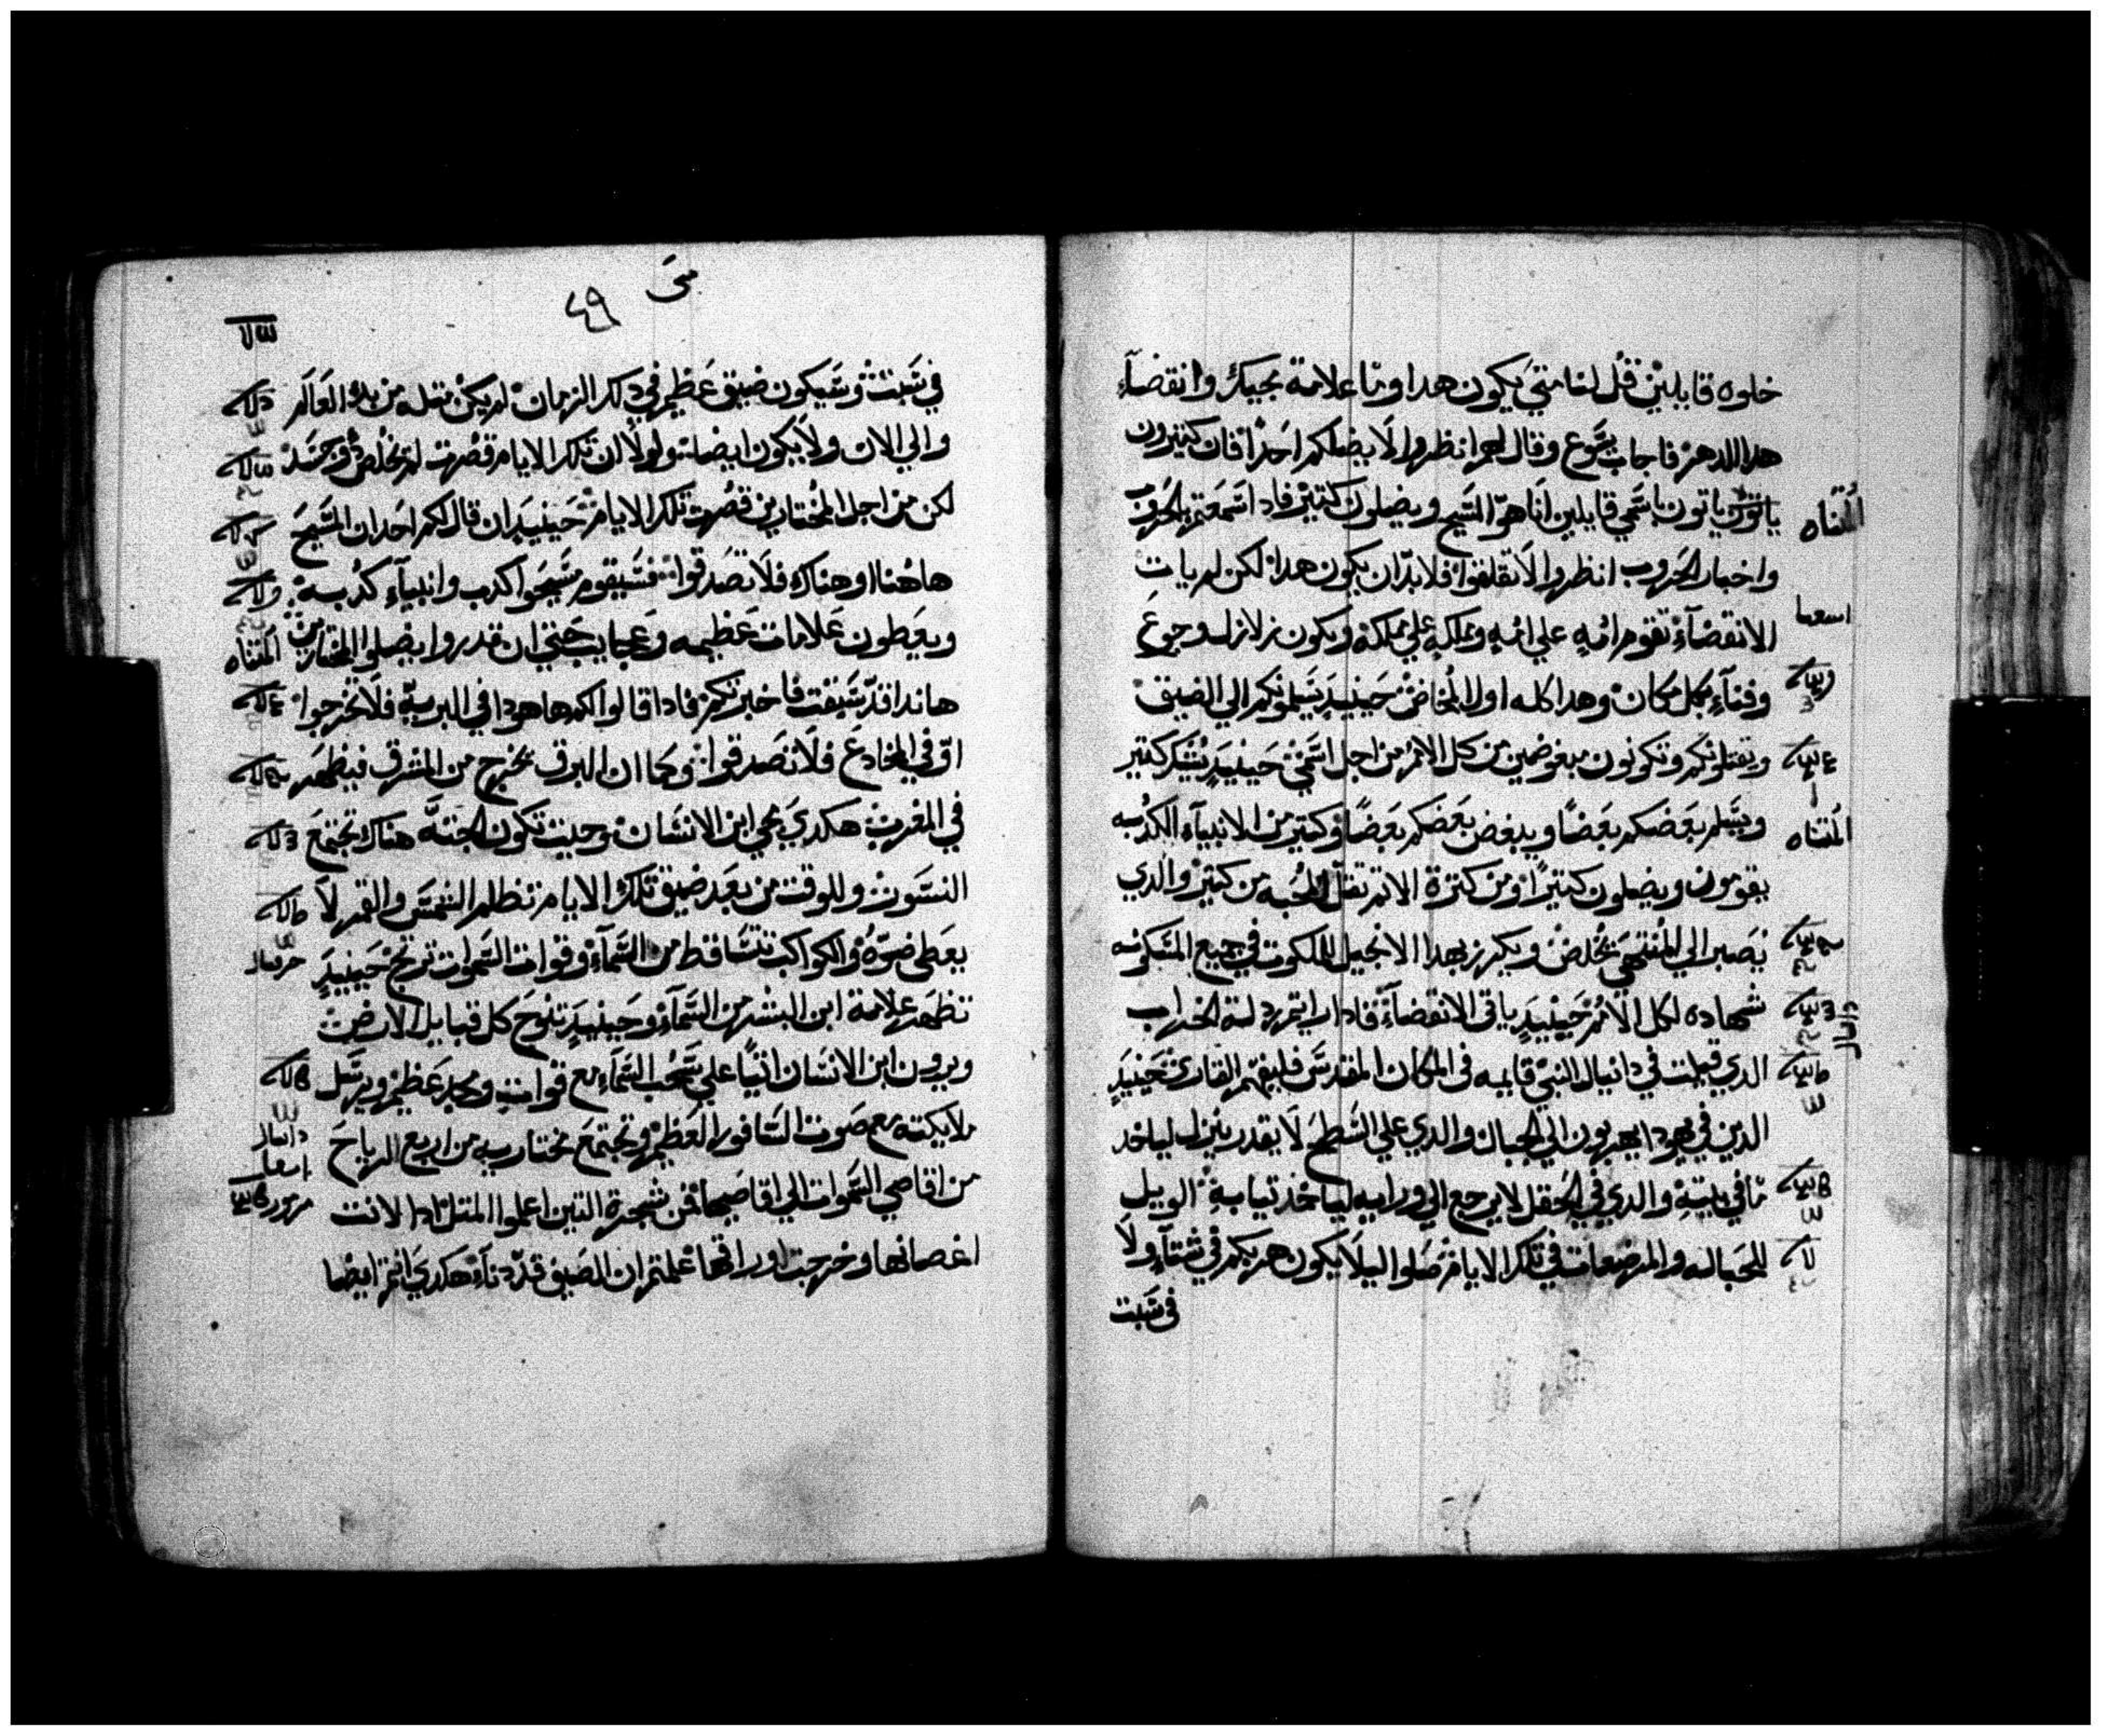 خلوه قايلين قل لنا متي يكون هدا وما علامة مجيك وانقضآء
هدا الدهر فاجاب يسوع وقال لهم انظروا لا يضلكم احدا فان كتيرون
ياتون باسمي قايلين انا هو المسيح ويضلون كتير فادا سمعتم بالحروب
واخبار الحروب انظروا لا تقلقوا فلا بد ان يكون هدا لكن لم يات
الانقضآء تقوم امه علي امه ومملكه علي مملكه ويكون زلازل وجوع
وفنآء بكل مكان وهدا كله اولا المخاض حينيد يسلمونكم الي الضيق
ويقتلونكم وتكونون مبغوضين من كل الامم من اجل اسمي حينيد يشكر كتير
ويسلم بعضكم بعضا ويبغض بعضكم بعضا وكتير من الانبيآء الكدبه
يقومون ويضلون كتيرا ومن كترة الاتم تقل المحبه من كتير والدي
يصبر الي المنتهي يخلص ويكرز بهدا الانجيل للملكوت في جميع المسكونه
شهاده لكل الامم حينيد ياتي الانقضآء فادا رايتم ردلة الخراب
الدي قيلت في دانيال النبي قايمه في المكان المقدس فليفهم القاري حينيد
الدين في يهودا يهربون الي الجبال والدي علي السطح لا يقدر ينزل لياخد
ما في بيته والدي في الحقل لا يرجع الي ورايه لياخد تيابه الويل
للحباله والمرضعات في تلك الايام صلوا ليلا يكون هربكم في شتآء ولا
في سبت
متى
٤٩
في سبت وسيكون ضيق عظيم في دلك الزمان لم يكن متله من بدء العالم
والي الان ولا يكون ايضا ولولا ان تلك الايام قصرت لم يخلص دو جسد
لكن من اجل المختارين قصرت تلك الايام حينيد ان قال لكم احد ان المسيح
هاهنا او هناك فلا تصدقوا فسيقوم مسيحوا كدب وانبيآء كدبه
ويعطون علامات عظيمه وعجايب حتي ان قدروا يضلوا المختارين
هاندا قد سبقت فاخبرتكم فادا قالوا لكم ها هودا في البريه فلا تخرجوا
او في المخادع فلا تصدقوا وكما ان البرق يخرج من المشرق فيظهر
في المغرب هكدي مجي ابن الانسان وحيت تكون الجته هناك تجتمع
النسور وللوقت من بعد ضيق تلك الايام تظلم الشمس والقمر لا
يعطي ضوه والكواكب تتساقط من السمآء وقوات السموات ترتج حينيد
تظهر علامة ابن البشر من السمآء وحينيد تنوح كل قبايل الارض
ويرون ابن الانسان اتيا علي سحب السمآء مع قوات ومجد عظيم ويرسل
ملايكته مع صوت السافور العظيم وتجتمع مختاريه من اربع الرياح
من اقاصي السموات الي اقاصيها فمن شجرة التين اعلموا المتل ادا لانت
اغصانها وخرجت اوراقها علمتم ان الصيف قد دنآء هكدي انتم ايضا